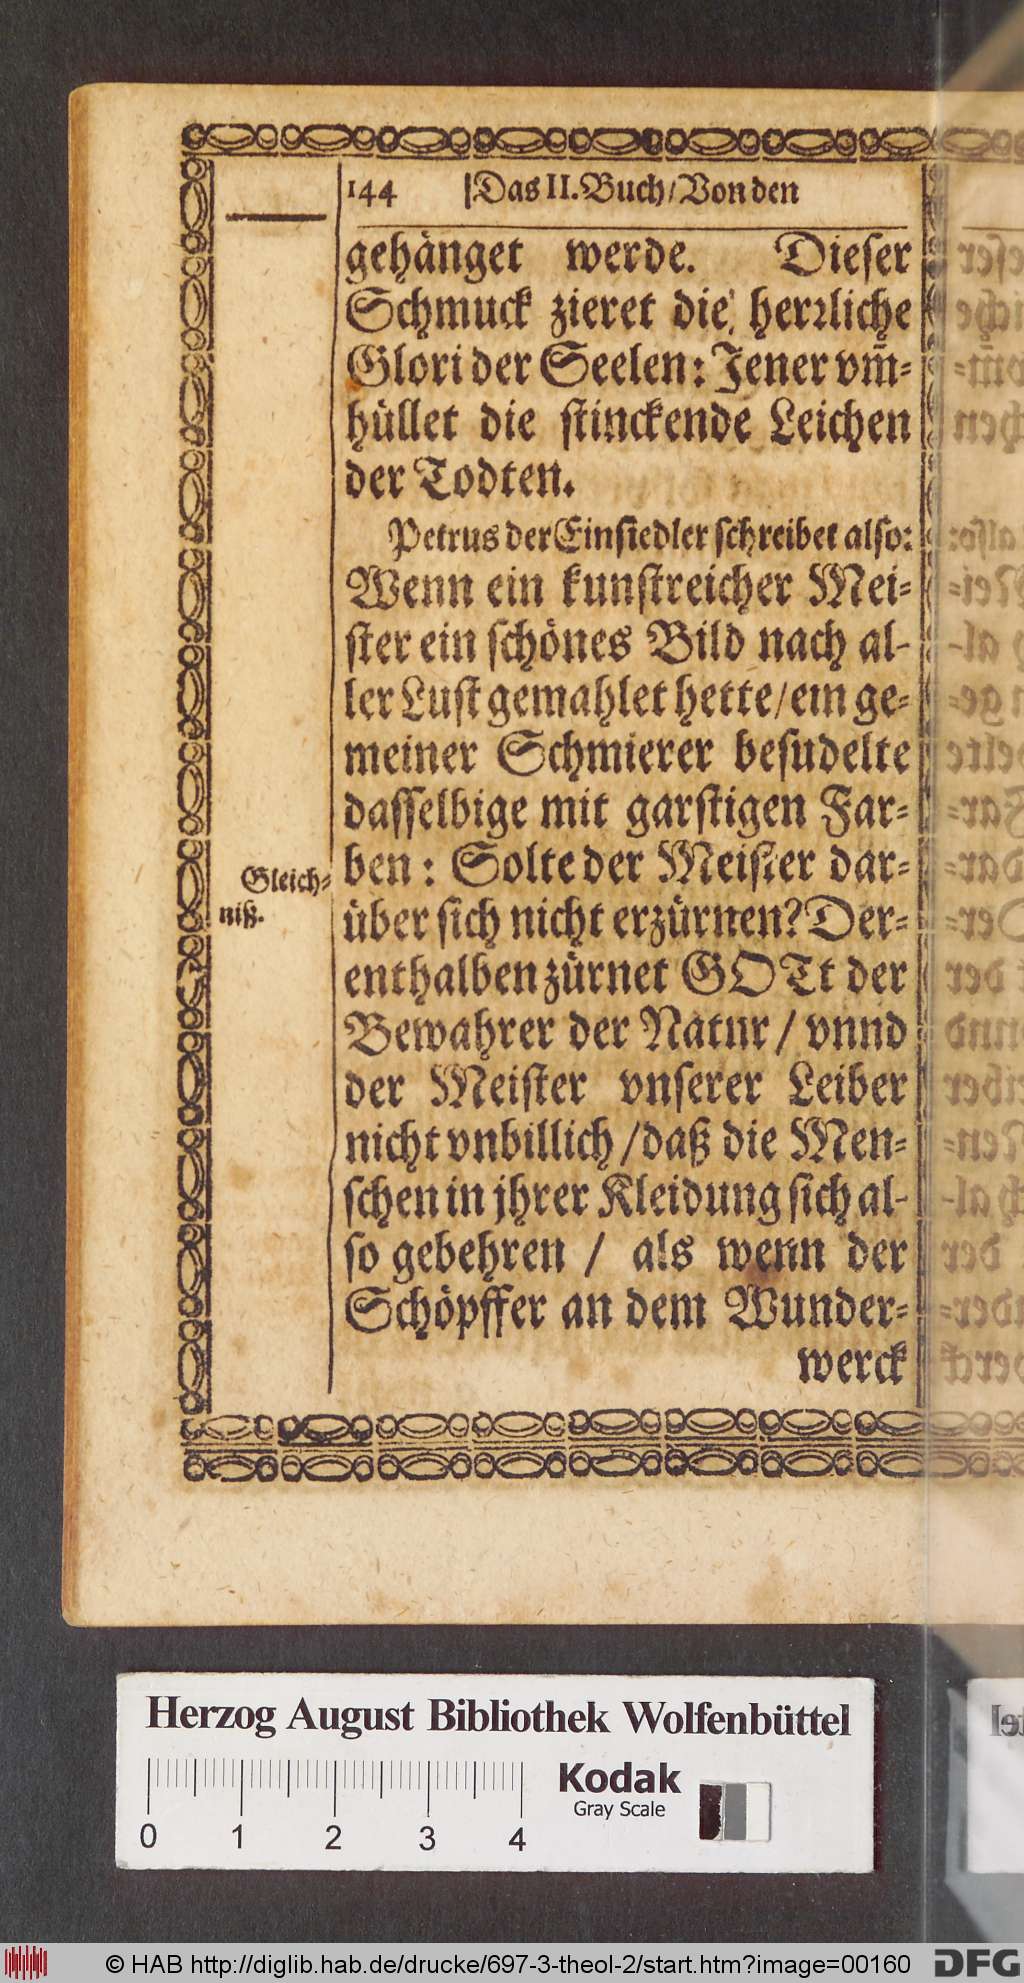 144 Das II. Buch/ Von den
gehänget werde. Dieser
Schmuck zieret die herꝛliche
Glori der Seelen: Jener vm̃-
hüllet die stinckende Leichen
der Todten.
Petrus der Einsiedler schreibet also:
Wenn ein kunstreicher Mei-
ster ein schönes Bild nach al-
ler Lust gemahlet hette/ ein ge-
meiner Schmierer besudelte
dasselbige mit garstigen Far-
ben: Solte der Meister dar-
Gleich-
niß.
über sich nicht erzürnen? Der-
enthalben zürnet GOTt der
Bewahrer der Natur/ vnnd
der Meister vnserer Leiber
nicht vnbillich/ daß die Men-
schen in jhrer Kleidung sich al-
so gebehren/ als wenn der
Schöpffer an dem Wunder-
werck
Herzog August Bibliothek Wolfenbüttel
Kodak
Gray Scale
0 1 2 3 4
© HAB http://diglib.hab.de/drucke/697-3-theol-2/start.htm?image=00160
DFG